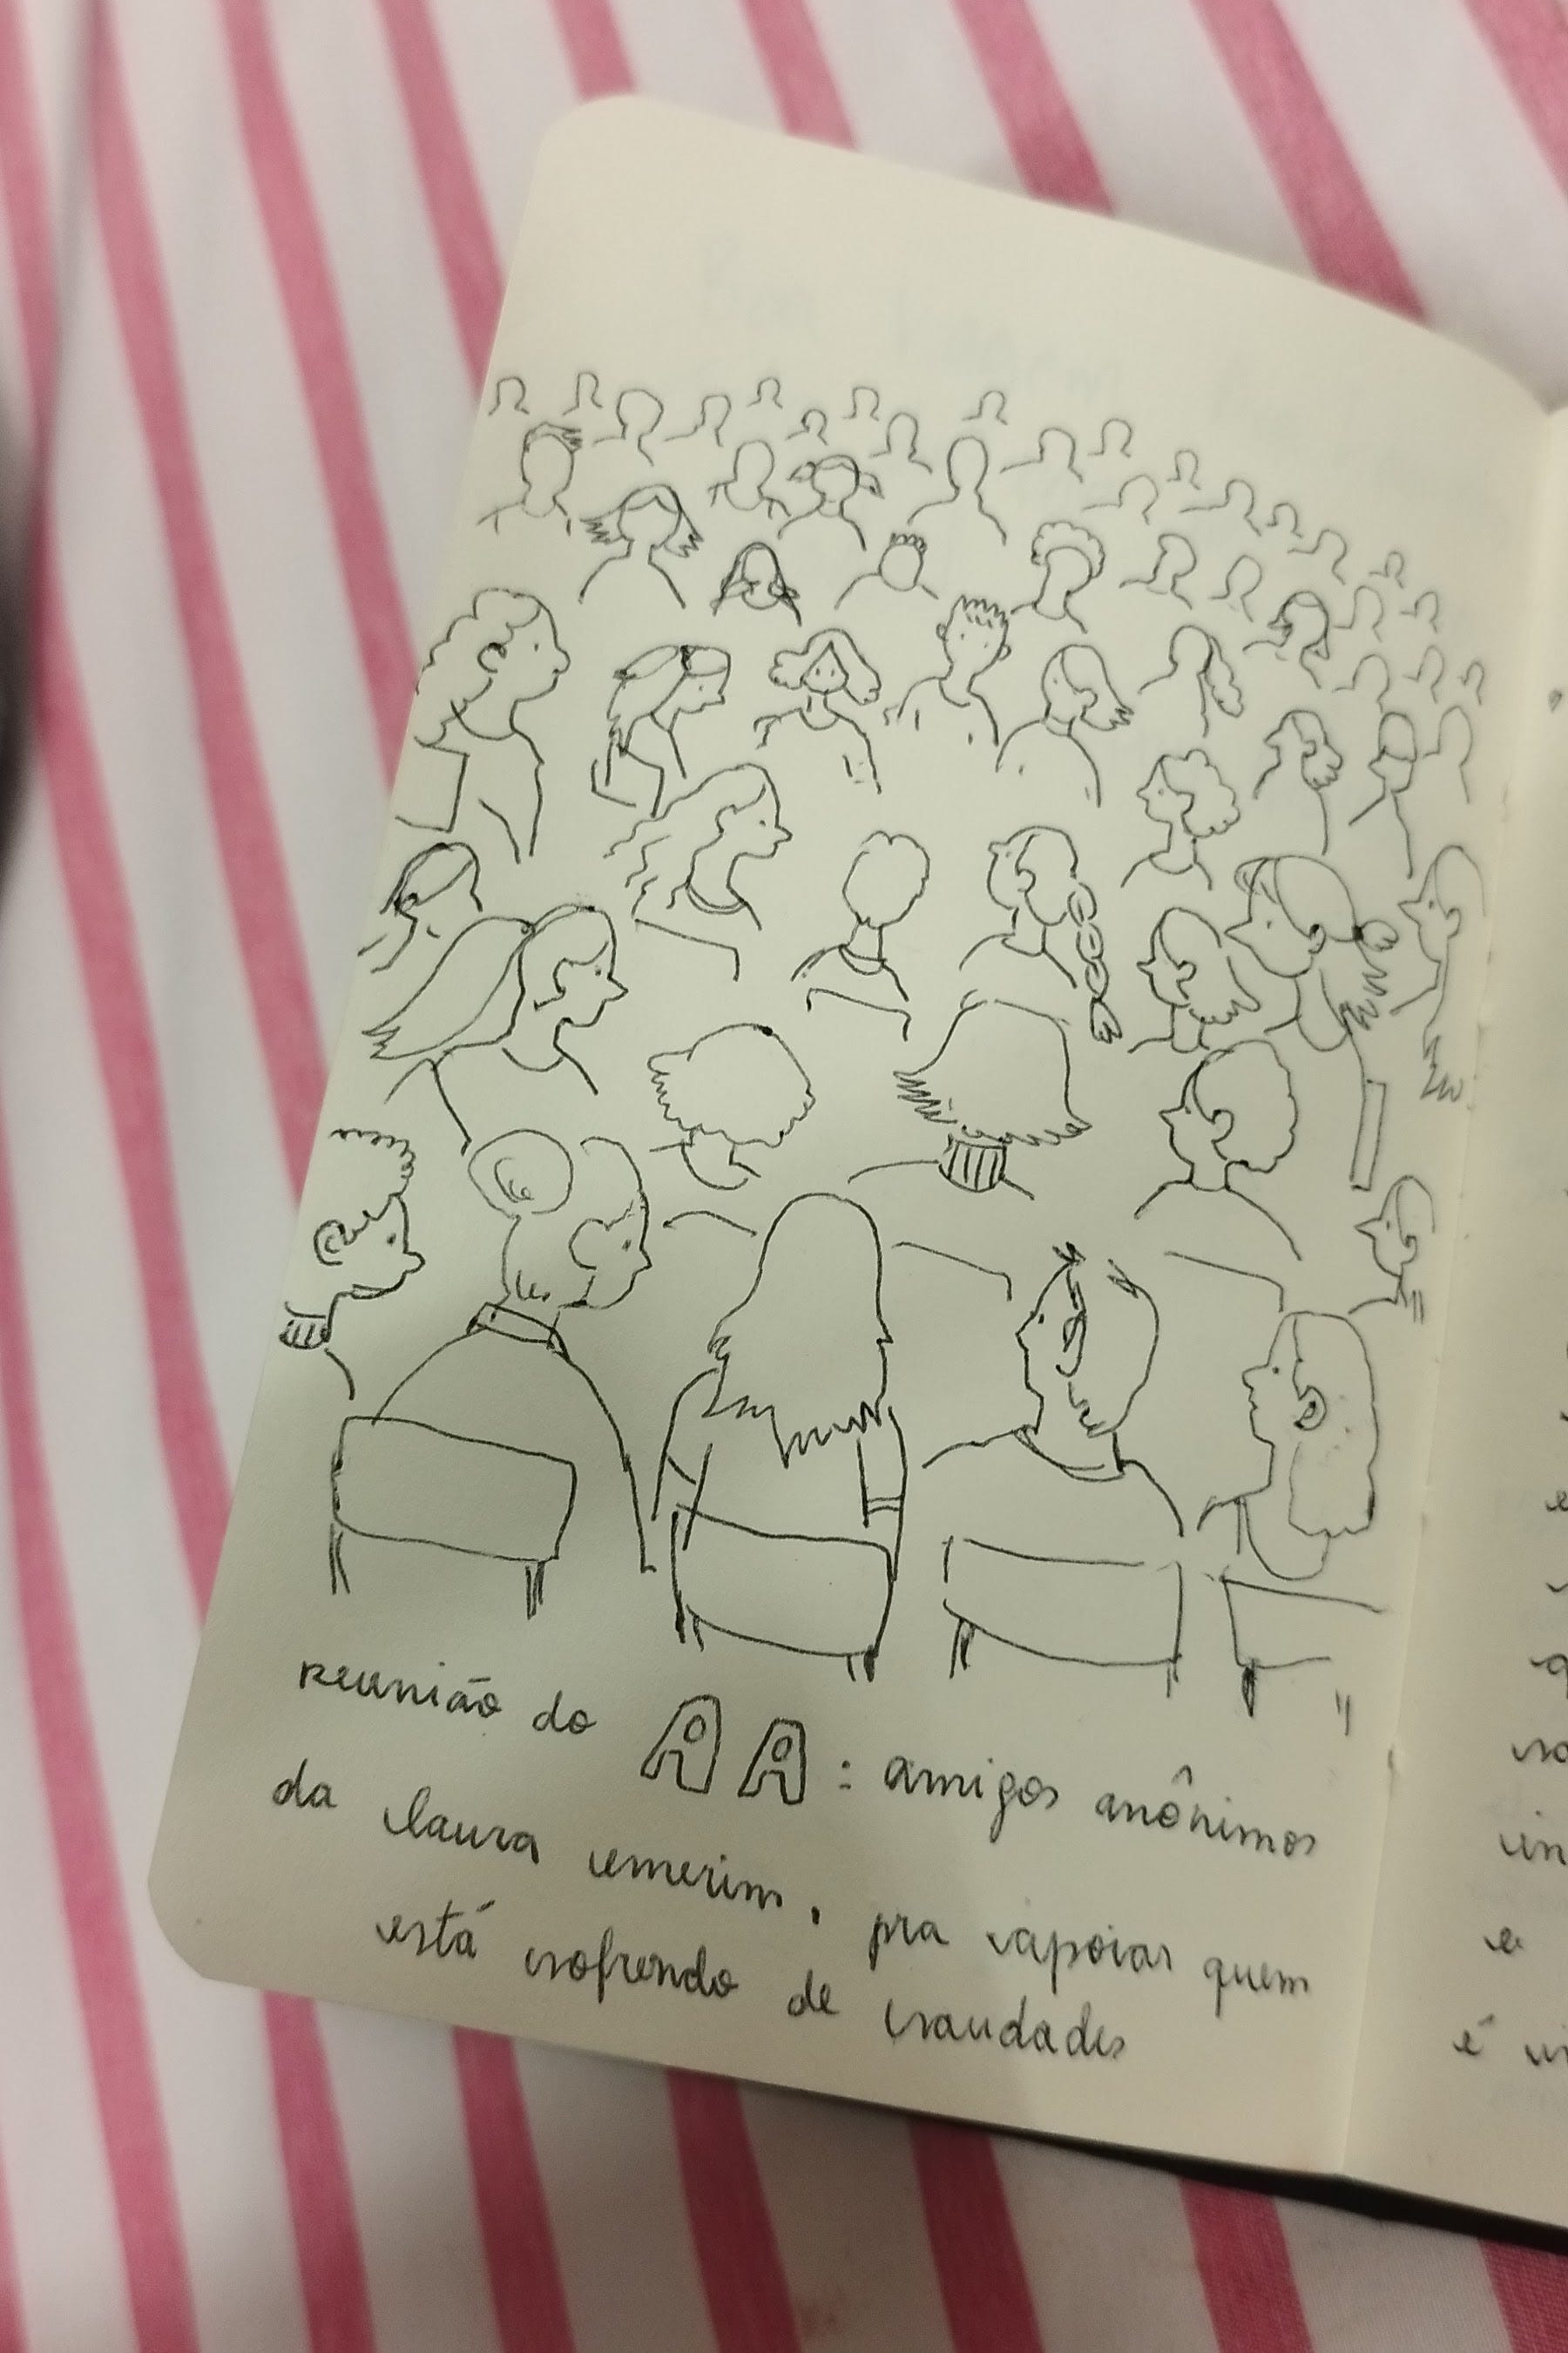 reunião do AA: amigos anônimos
da laura emerim, pra apoiar quem
está sofrendo de saudades